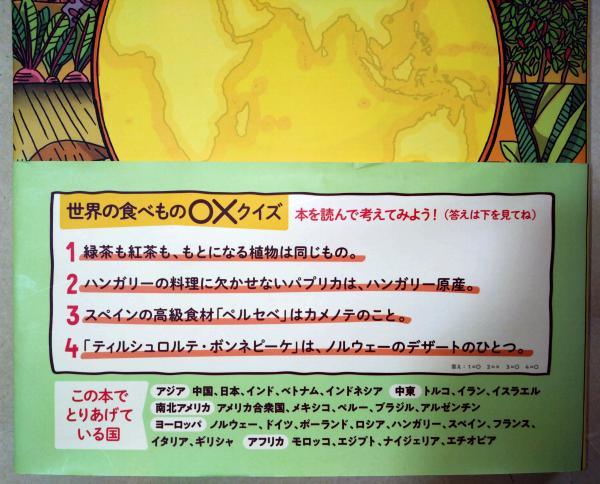 世界の食べもの○×クイズ 本を読んで考えてみよう！（答えは下を見てね）
1 緑茶も紅茶も、もとになる植物は同じもの。
2 ハンガリーの料理に欠かせないパプリカは、ハンガリー原産。
3 スペインの高級食材「ペルセベ」はカメノテのこと。
4 「ティルシュロルテ・ボンネピーケ」は、ノルウェーのデザートのひとつ。
答え：1＝○ 2＝× 3＝○ 4＝○
この本で
とりあげて
いる国
アジア 中国、日本、インド、ベトナム、インドネシア 中東 トルコ、イラン、イスラエル
南北アメリカ アメリカ合衆国、メキシコ、ペルー、ブラジル、アルゼンチン
ヨーロッパ ノルウェー、ドイツ、ポーランド、ロシア、ハンガリー、スペイン、フランス、
イタリア、ギリシャ アフリカ モロッコ、エジプト、ナイジェリア、エチオピア